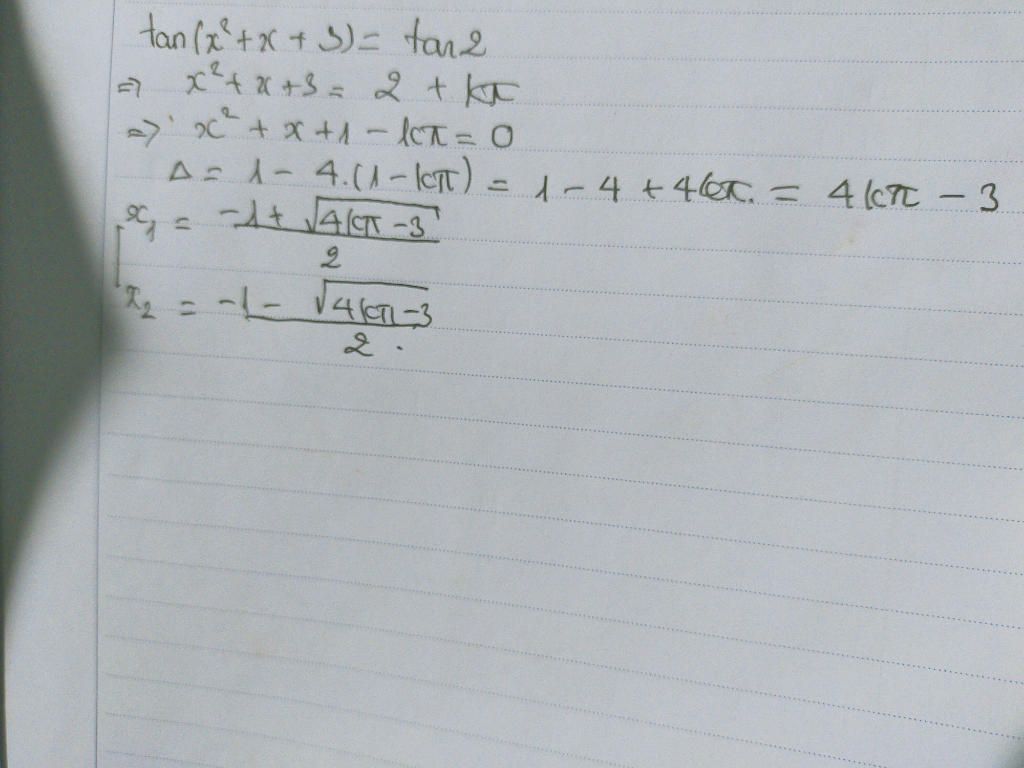 tan(x²+x+3) = tan2
=> x²+x+3 = 2 + kπ
=> x² + x + 1 - kπ = 0
Δ = 1 - 4.(1-kπ) = 1 - 4 + 4kπ. = 4kπ - 3
x₁ = (-1 + √(4kπ-3))/2
x₂ = (-1 - √(4kπ-3))/2.